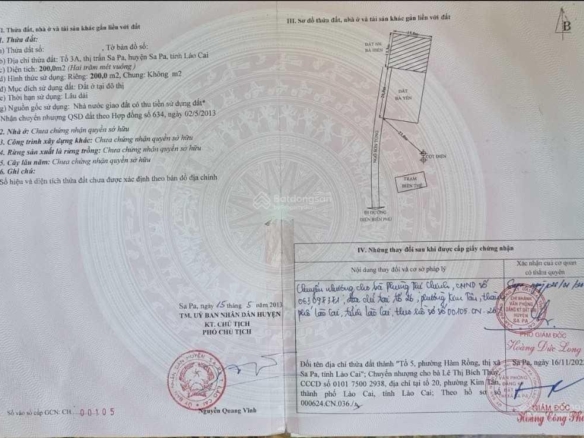 II. Thửa đất, nhà ở và tài sản khác gắn liền với đất
1. Thửa đất:
a) Thửa đất số: , Tờ bản đồ số:
b) Địa chỉ thửa đất: Tổ 3A, thị trấn Sa Pa, huyện Sa Pa, tỉnh Lào Cai
c) Diện tích: 200,0m2 (Hai trăm mét vuông)
d) Hình thức sử dụng: Riêng: 200,0 m2, Chung: Không m2
đ) Mục đích sử dụng đất: Đất ở tại đô thị
e) Thời hạn sử dụng: Lâu dài
g) Nguồn gốc sử dụng: Nhà nước giao đất có thu tiền sử dụng đất"
Nhận chuyển nhượng QSD đất theo Hợp đồng số 634, ngày 02/5/2013
2. Nhà ở: Chưa chứng nhận quyền sở hữu
3. Công trình xây dựng khác: Chưa chứng nhận quyền sở hữu
4. Rừng sản xuất là rừng trồng: Chưa chứng nhận quyền sở hữu
5. Cây lâu năm: Chưa chứng nhận quyền sở hữu
6. Ghi chú:
Số hiệu và diện tích thửa đất chưa được xác định theo bản đồ địa chính
Sa Pa, ngày 15 tháng 5 năm 2013
TM. UỶ BAN NHÂN DÂN HUYỆN
KT. CHỦ TỊCH
PHÓ CHỦ TỊCH
Nguyễn Quang Vinh
Số vào sổ cấp GCN: CH 00105
III. Sơ đồ thửa đất, nhà ở và tài sản khác gắn liền với đất
B
ĐẤT
BÀ YÊN
CỘT ĐIỆN
TRẠM
BIẾN THẾ
Batdongsan
IV. Những thay đổi sau khi được cấp giấy chứng nhận
Nội dung thay đổi và cơ sở pháp lý
Xác nhận của cơ quan
có thẩm quyền
Chuyển nhượng cho bà Phùng Thị CMND số
tổ 26, phường Kim Tân, thành
phố Lào Cai, tỉnh Lào Cai, theo hồ sơ số 00109.CN
GIÁM ĐỐC
Hoàng Đức Long
Đổi tên địa chỉ thửa đất thành "Tổ 5, phường Hàm Rồng, thị xã
Sa Pa, tỉnh Lào Cai"; Chuyển nhượng cho bà Lê Thị Bích Thủy,
CCCD số 0101 7500 2938, địa chỉ tại tổ 20, phường Kim Tân,
thành phố Lào Cai, tỉnh Lào Cai; Theo hồ sơ số
000624.CN.036
Sa Pa, ngày 16/11/202
GIÁM ĐỐC
Hoàng Công